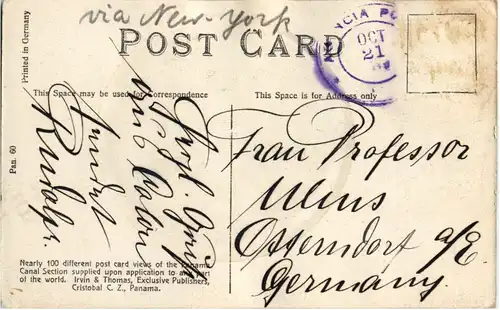 via New-York
POST CARD
AGENCIA PO
OCT
21
Printed in Germany
Pan. 60
This Space may be used for Correspondence
This Space is for Address only
Herzl. Grüße
aus Colon
sendet
Rudolf.
Frau Professor
Ulms
Osserndorf a/E.
Germany.
Nearly 100 different post card views of the Panama
Canal Section supplied upon application to any part
of the world. Irvin & Thomas, Exclusive Publishers,
Cristobal C. Z., Panama.